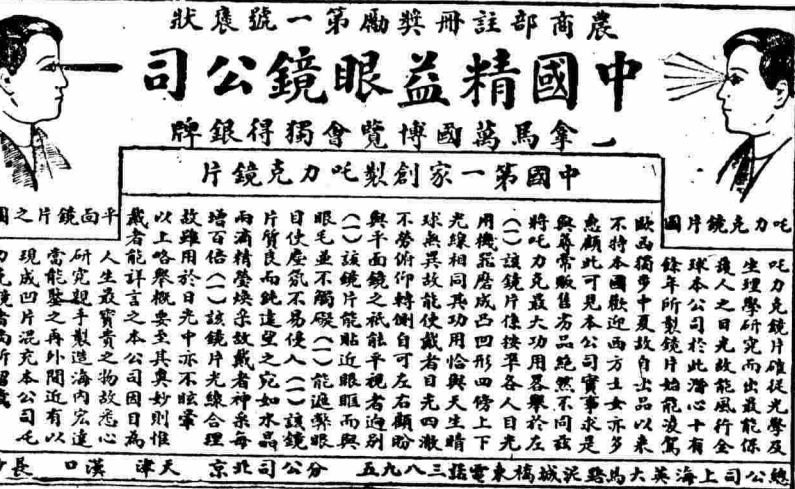 農商部註冊獎勵第一號褒狀
中國精益眼鏡公司
巴拿馬萬國博覽會獨得銀牌
中國第一家創製吒力克鏡片
吒力克鏡片圖
吒力克鏡片確從光學及
生理學研究而出最能保
護人之目光故能風行全
球本公司於此潛心十有
餘年所製鏡片始能凌駕
歐西獨步中夏故自出品以來
不特本國歡迎西方士女亦多
惠顧此可見本公司實事求是
與尋常販售劣品絕然不同茲
將吒力克最大功用畧舉於左
(一)該鏡片係按準各人目光
用機器磨成凸凹形四傍上下
光線相同其功用恰與天生睛
球無異故能使戴者目光四
不勞俯仰轉側自可左右顧盼
與平面鏡之祇能平視者迥別
(一)該鏡片能貼近眼眶而與
眼毛並不觸礙(一)能遮蔽眼
目使塵氛不易侵入(一)該鏡
片質良而純遠望之宛如水晶
兩滴精瑩煥采故戴者神采每
增百倍(一)該鏡片光線合理
故雖用於日光中亦不眩暈
以上略舉概要至其奧妙則惟
戴者能詳言之本公司因目為
人生最寶貴之物故悉心
研究親手製造海內宏達
當能鑒之再外間近有以
現成凹片混充本公司吒
力克鏡者尚祈留意
平面鏡片之圖
總公司上海英大馬路泥城橋東電話三八九五 分公司北京 天津 漢口 長沙